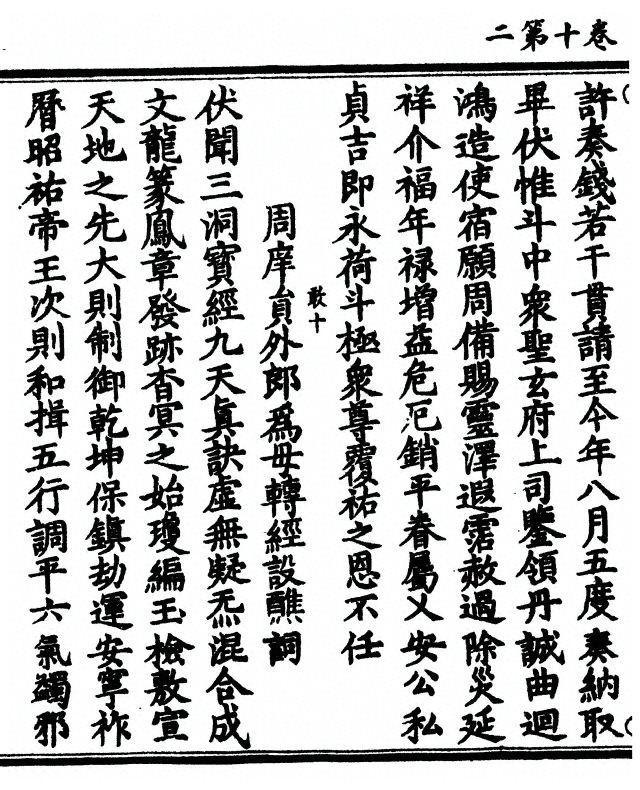 卷十第二
許奏錢若干貫請至今年八月五度奏納取
畢伏惟斗中衆聖玄府上司鑒領丹誠曲迴
鴻造使宿願周備賜靈澤遐霑赦過除災延
祥介福年祿增益危厄銷平眷屬乂安公私
貞吉即永荷斗極衆尊覆祐之恩不任
敢十
周庠員外郎爲母轉經設醮詞
伏聞三洞寳經九天眞訣虚無凝炁混合成
文龍篆鳳章發跡杳冥之始瓊編玉檢敷宣
天地之先大則制御乾坤保鎭劫運安寧祚
曆昭祐帝王次則和揖五行調平六氣蠲邪